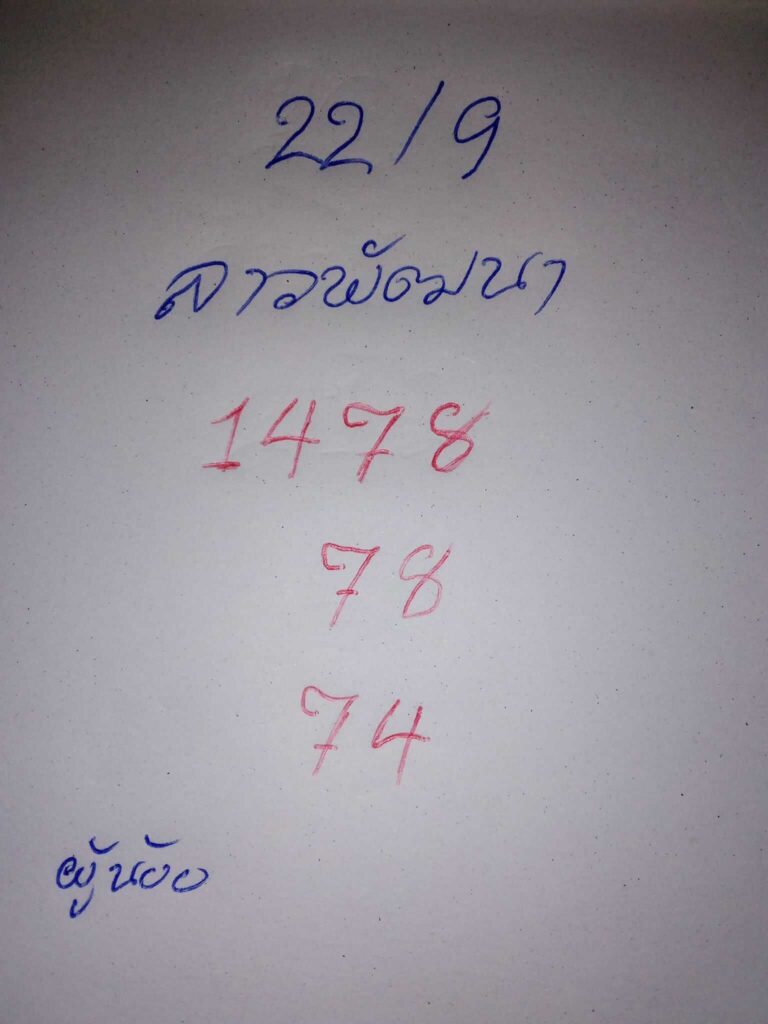 22/9
ลาวพัฒนา
1478
78
74
ผู้น้อย